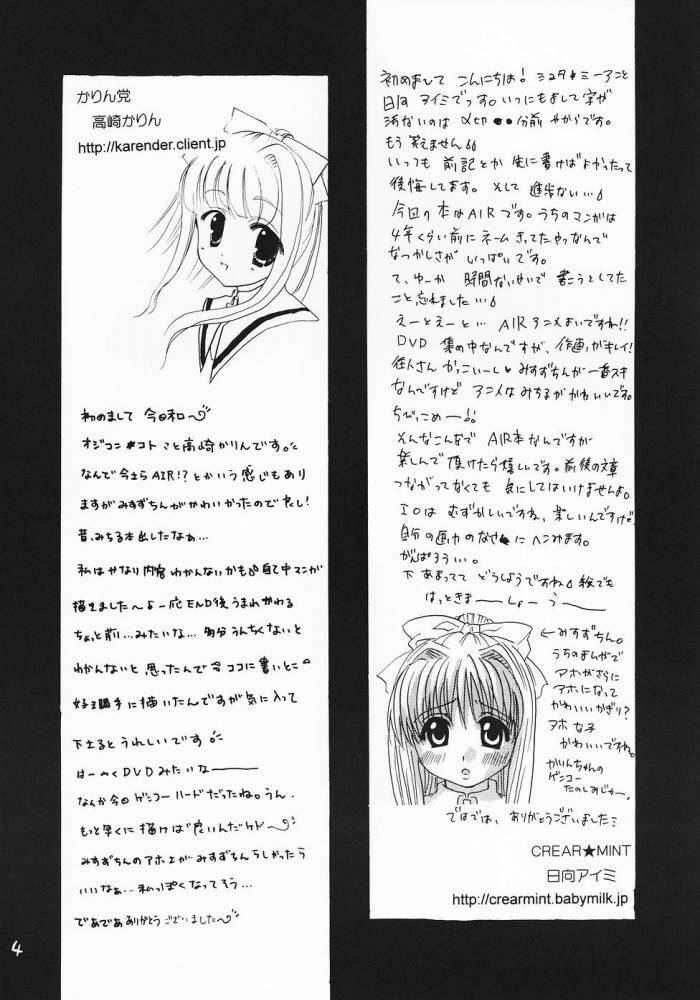 かりん党
高崎かりん
http://karender.client.jp
初めまして 今日和
オジコン コト こと高崎かりんです。
なんで今さらAIR!?とかいう感じもあり
ますがみすずちんがかわいかったので良し!
昔、みちる本出したなぁ…
私はせなり内容わかんないかも 自己中マンガ
描きました〜 一応END後うまれかわる
ちょっと前…みたいな… 多分うんちくないと
わかんないと思ったんで今ココに書いとこ
好き勝手に描いたんですが気に入って
下さるとうれしいです。
はーやくDVDみたいなー
なんか今回ゲンコーハードだったね。うん。
もっと早くに描けば良いんだケド
みすずちんのアホさがみすずちんらしかったら
いいなぁ…私っぽくなってそう…
であであありがとうございました〜
初めまして こんにちは! ミュタ★ミーアこと
日向アイミでっす。いつにもまして字が
汚ないのは〆切●●分前やからです。
もう笑えません
いっつも前記とか先に書けばよかったって
後悔してます。そして進歩ない…
今回の本はAIRです。うちのマンガは
4年くらい前にネームきってたやつなんで
なつかしさがいっぱいです。
て、ゆーか 時間ないせいで書こうとしてた
こと忘れました…
えーとえーと… AIRアニメよいですね!!
DVD 集め中なんですが、作画がキレイ!
往人さんかっこいーし♥みすずちんが一番スキ
なんですけどアニメはみちるがかわいいです。
ちびっこめー!!
そんなこんなで AIR本なんですが
楽しんで頂けたら嬉しいです。前後の文章
つながってなくても 気にしてはいけませんよ。
はむずかしいですね、楽しいんですけど
自分の画力のなさにヘこみます。
がんばろうぃ。
下あまってて どうしようですね 絵でも
はっときまーしょーうー
←みすずちん。
うちのまんがで
アホがさらに
アホになって
かわいいかぎり?
アホな子
かわいいですね。
かりんちゃんの
ゲンコー
たのしみじゃー。
ではでは、ありがとうございました
CREAR★MINT
日向アイミ
http://crearmint.babymilk.jp
4